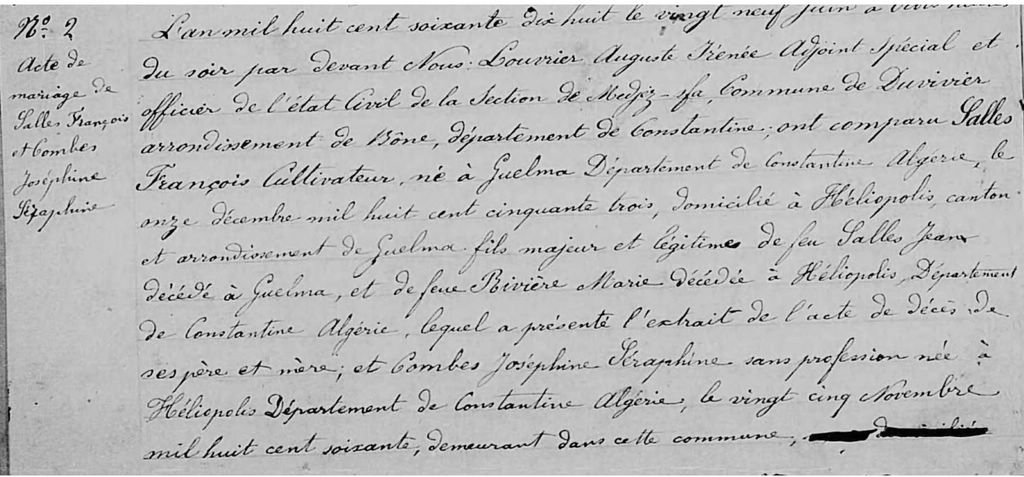 Nº 2
Acte de
mariage de
Salles François
et Combes
Joséphine
Séraphine
L'an mil huit cent soixante dix huit le vingt neuf Juin à
du soir par devant Nous: Louvrier Auguste Irénée Adjoint Spécial et
officier de l'état Civil de la Section de Medjez-sfa, Commune de Duvivier
arrondissement de Bône, département de Constantine; ont comparu Salles
François Cultivateur, né à Guelma Département de Constantine Algérie, le
onze décembre mil huit cent cinquante trois, domicilié à Héliopolis, canton
et arrondissement de Guelma fils majeur et légitimes de feu Salles Jean
décédé à Guelma, et de feue Rivière Marie décédée à Héliopolis, Département
de Constantine Algérie, lequel a présenté l'extrait de l'acte de décès de
ses père et mère; et Combes Joséphine Séraphine sans profession née à
Héliopolis Département de Constantine Algérie, le vingt cinq Novembre
mil huit cent soixante, demeurant dans cette commune,